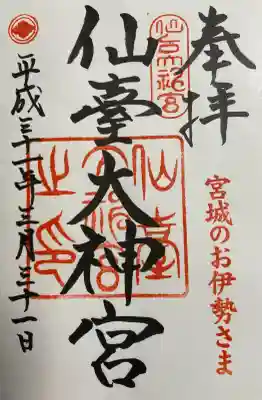 奉拝
宮城のお伊勢さま
仙台大神宮
仙臺大神宮
仙臺大神宮之印
平成三十一年三月三十一日